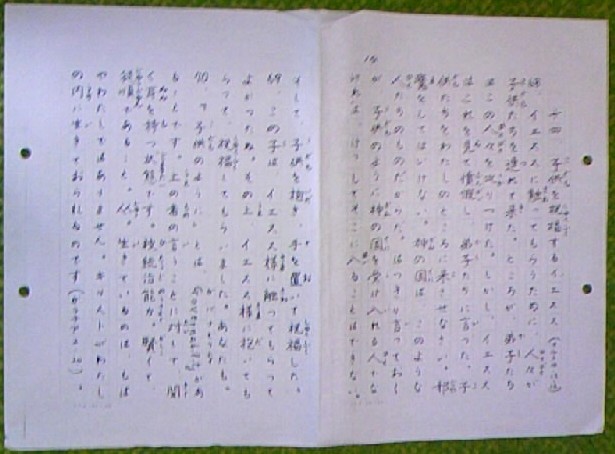 十四 子供を祝福するイエス
イエスに触ってもらうために、人々が
子供たちを連れて来た。ところが、弟子たち
はこの人々を叱りつけた。しかし、イエス
はこれを見て憤慨し、弟子たちに言った。子
供たちをわたしのところに来させなさい。
してはいけない。神の国は、このような
人たちのものだからだ。はっきり言っておく
が、子供のように神の国を受け入れる人でな
ければ、けっしてそこに入ることはできない。
そして、子供を抱き、手を置いて祝福した。
69、この子は、イエス様に触ってもらって
よかったね。その上、イエス様に抱いても
らって、祝福してもらいました。あなたも。
70、子供のように、とは、があ
ることです。上の者の言うことに対して、聞
く耳を持つ状態です。被統治能力。賢くて
であること。生きているのは、もは
やわたしではありません。キリストがわたし
の内に生きておられるのです